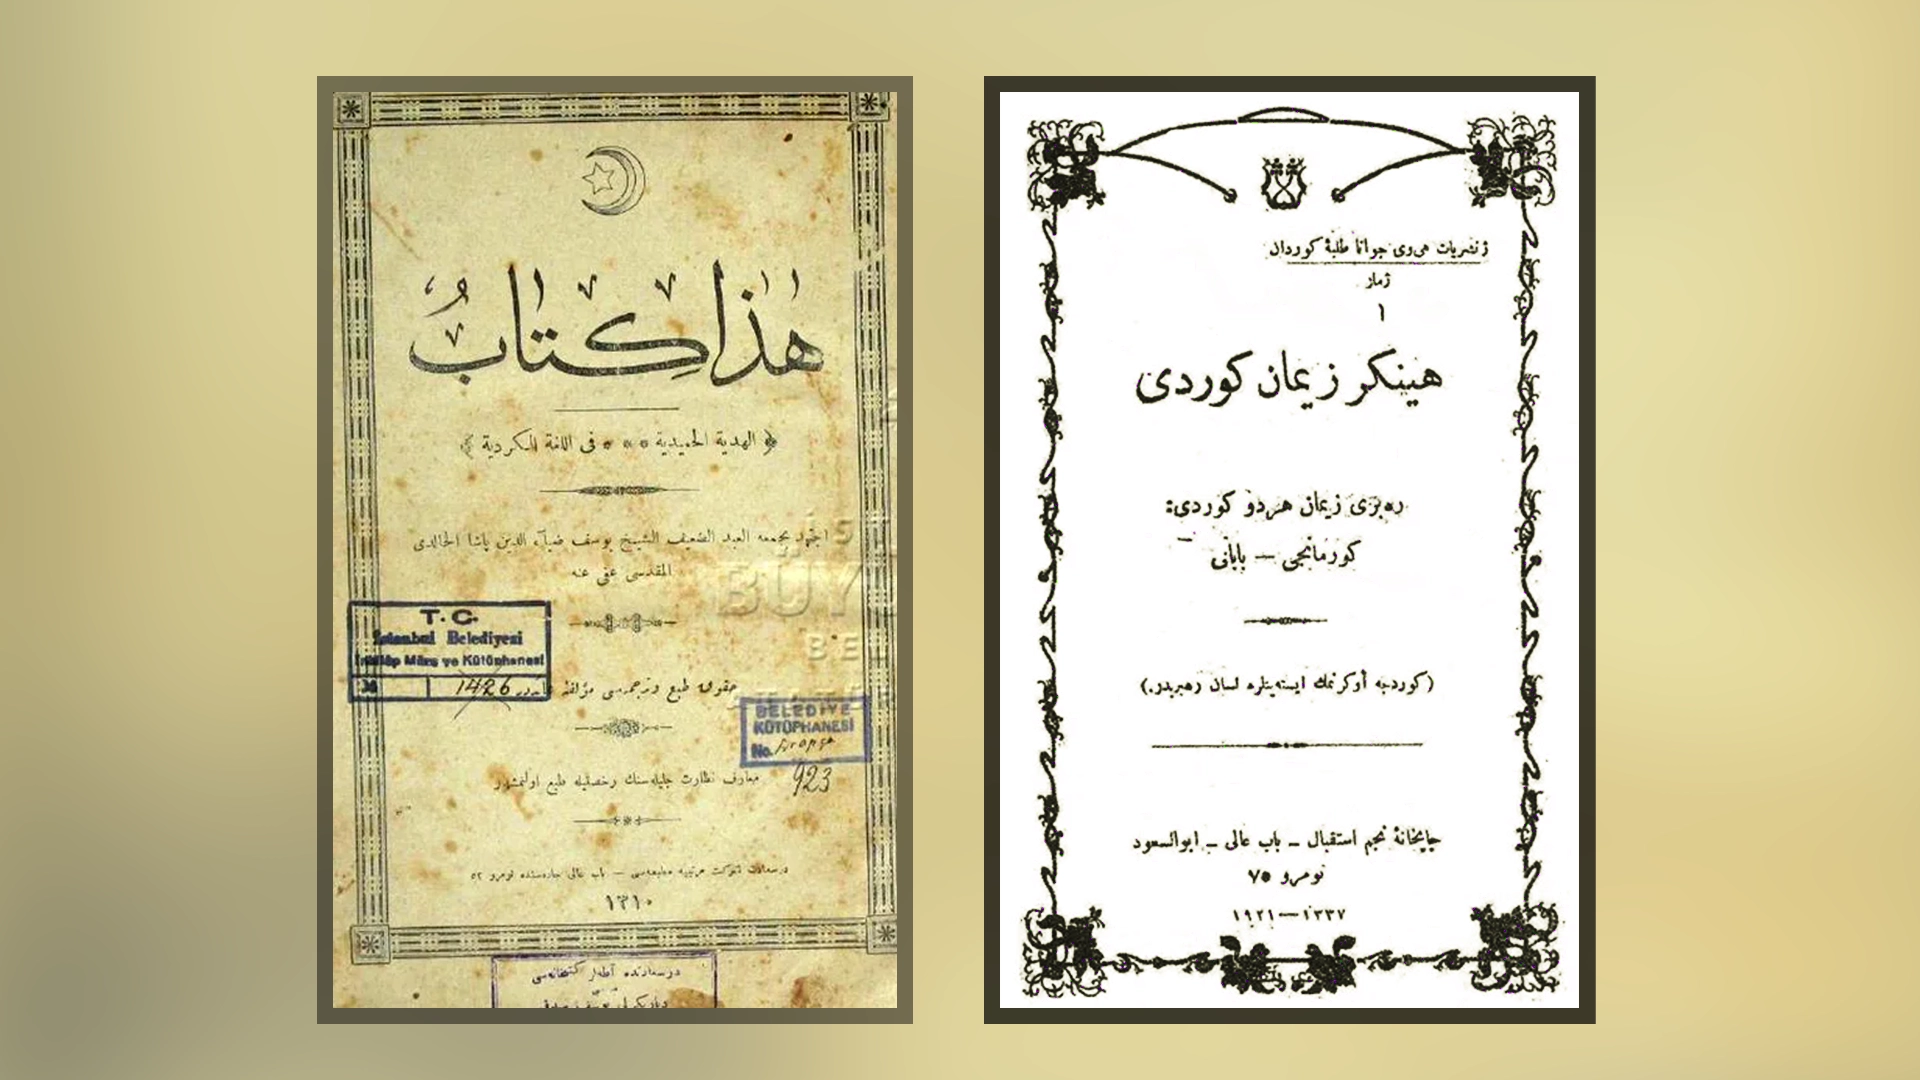 هذا كتاب
﴿ الهدية الحميدية * * * فى اللغة الكردية ﴾
اجتهد بجمعه العبد الضعيف الشيخ يوسف ضياء الدين پاشا الخالدى
المقدسى عفى عنه
T. C.
İstanbul Belediyesi
İnkılâp Müze ve Kütüphanesi
1426
حقوق طبع وترجمه‌سى مؤلفنه عائددر
BELEDİYE
KÜTÜPHANESİ
No.
923
معارف نظارت جليله‌سنك رخصتيله طبع اولنمشدر
درسعادت شركت مرتبيه مطبعه‌سى — باب عالى جاده‌سنده نومرو ٥٢
١٣١٠
درسعادتده
BÜYÜ
ژ نشريات هى‌وى جوانا طلبهٔ كوردان
ژمار
١
هينكر زيمان كوردى
ره‌بژى زيمان هردو كوردى:
كورمانجى — بابانى
(كوردجه أوكرنمك ايسته‌ينلره لسان رهبريدر.)
چاپخانهٔ نجم استقبال ـ باب عالى ـ ابوالسعود
نومرو ٧٥
١٣٣٧—١٩٢١